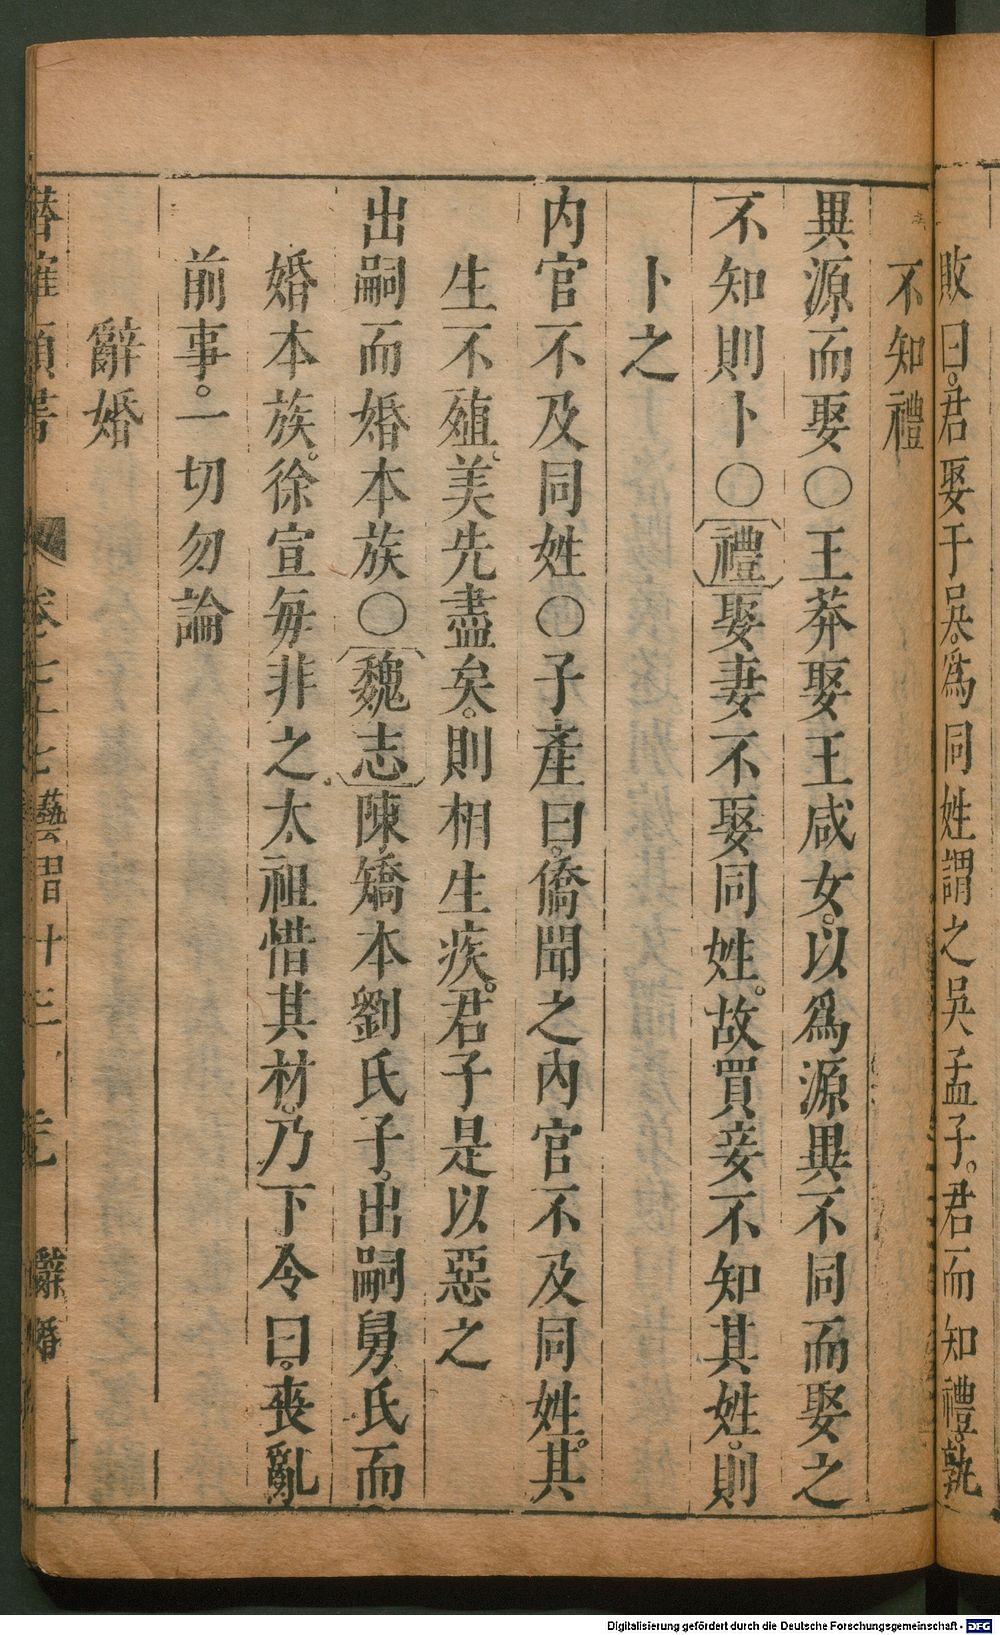 敗曰。君娶于吳。爲同姓謂之吳孟子。君而知禮。孰
不知禮
異源而娶〇王莽娶王咸女。以爲源異不同而娶之
不知則卜〇禮娶妻不娶同姓。故買妾不知其姓。則
卜之
內官不及同姓〇子產曰。僑聞之內官不及同姓。其
生不殖。美先盡矣。則相生疾。君子是以惡之
出嗣而婚本族〇魏志陳矯本劉氏子。出嗣舅氏而
婚本族。徐宣每非之太祖惜其材。乃下令曰。喪亂
前事。一切勿論
辭婚
潛確類書 卷七十七 藝習十三 辭婚
Digitalisierung gefördert durch die Deutsche Forschungsgemeinschaft - DFG